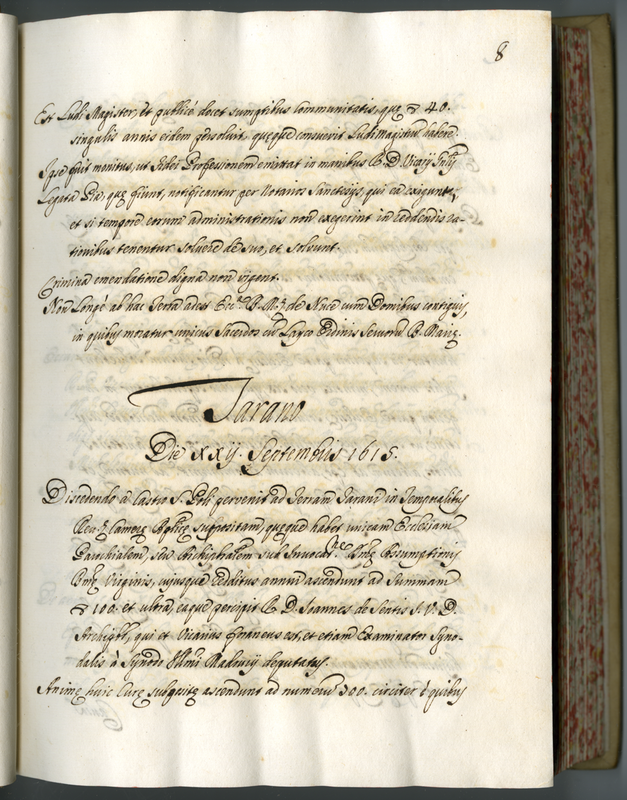 8
Est Ludi Magister, et publicè docet sumptibus Communitatis, quę 40.
singulis annis eidem psoluit, queque consuevit Ludimagistrū habere
Ipse fuit monitus, ut fidei Professionem emittat in manibus R. D. Vicarij
Legata Pia, quę fiunt, notificantur per Notarios Sanctesijs, qui ea exigunt,
et si tempore eorum administrationis non exegerint in reddendis ra-
tionibus tenentur solvere de suo, et solvunt.
Crimina emendatione digna non vigent.
Non Longè ab hac Terra adest Ecc.ᵃ B. M. de Nuce cum Domibus contiguis,
in quibus moratur unicus Sacerdos cū Layco Ordinis Servorū B. Marię.
Tarano
Die XXij. Septembris 1615.
Discedendo à Castro S. Poli pervenit ad Terram Tarani in Temporalibus
Reu. Camerę Aplicę suppositam, quęque habet unicam Ecclesiam
Parochialem, seu Archipbalem sub Invocat.ⁿᵉ Bmę Assumptionis
Bmę Virginis, cuiusque redditus annui ascendunt ad Summam
100. et ultra, eaque percipit R. D. Ioannes de Sentis I. V. D.
Archipbr, qui et Vicarius foraneus est, et etiam Examinator Syno-
dalis à Synodo Illmi Madrutij deputatus.
Animę huic Curę subiectę ascendunt ad numerū 300. circiter è quibus